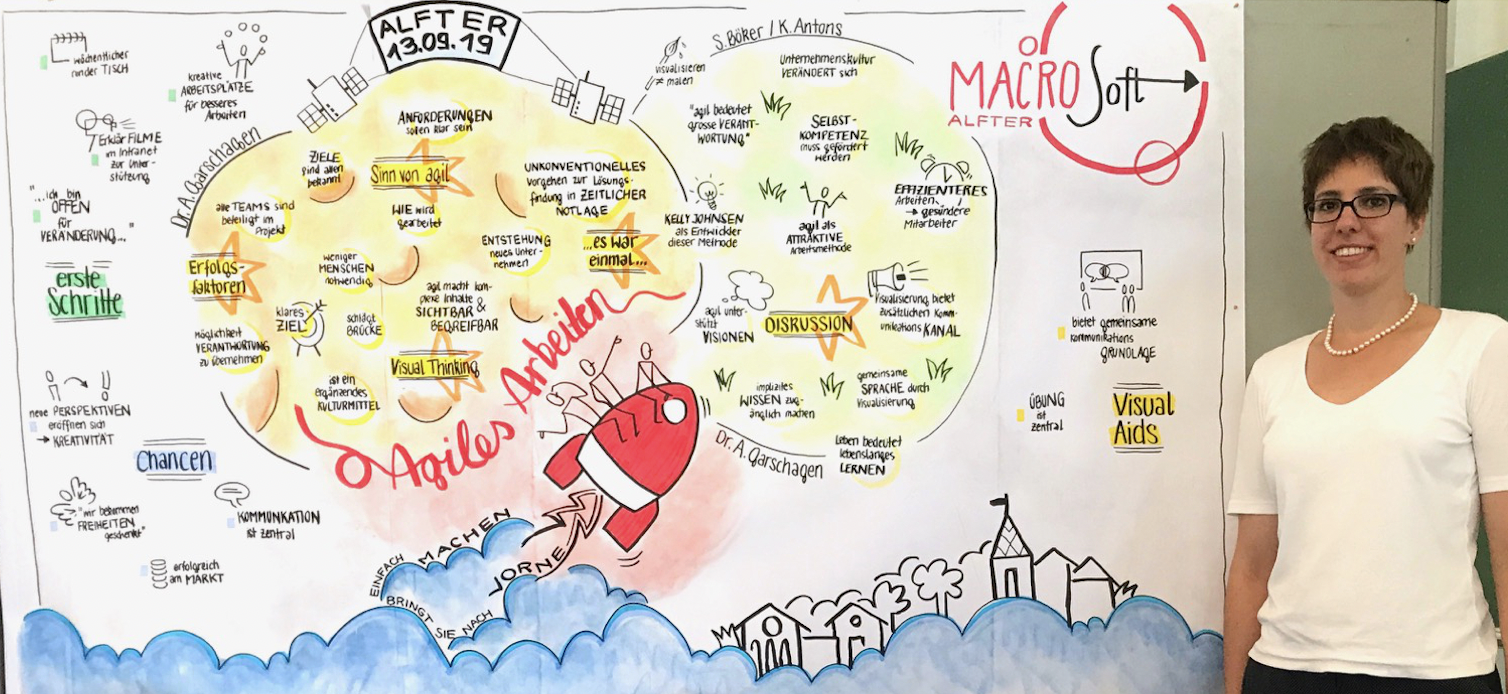 ALFTER
13.09.19
wöchentlicher
runder TISCH
kreative
ARBEITSPLÄTZE
für besseres
Arbeiten
Erklär FILME
im Intranet
zur Unter-
stützung
"...ich bin
OFFEN
für
VERÄNDERUNG..."
erste
Schritte
neue PERSPEKTIVEN
eröffnen sich
→ KREATIVITÄT
Chancen
"wir bekommen
FREIHEITEN
geschenkt"
KOMMUNIKATION
ist zentral
erfolgreich
am MARKT
Dr. A. Garschagen
ANFORDERUNGEN
sollen klar sein
ZIELE
sind allen
bekannt
Sinn von agil
alle TEAMS sind
beteiligt im
Projekt
WIE wird
gearbeitet
UNKONVENTIONELLES
Vorgehen zur Lösungs-
findung in ZEITLICHER
NOTLAGE
ENTSTEHUNG
neues Unter-
nehmen
...es war
einmal...
Erfolgs-
faktoren
weniger
MENSCHEN
notwendig
klares
ZIEL
schlägt
BRÜCKE
agil macht kom-
plexe Inhalte
SICHTBAR &
BEGREIFBAR
möglichkeit
VERANTWORTUNG
zu übernehmen
Visual Thinking
ist ein
ergänzendes
KULTURMITTEL
Agiles Arbeiten
EINFACH MACHEN
BRINGT SIE NACH VORNE
S. Böker / K. Antons
visualisieren
≠ malen
Unternehmenskultur
VERÄNDERT sich
"agil bedeutet
grosse VERANT-
WORTUNG"
SELBST-
KOMPETENZ
muss gefördert
werden
EFFIZIENTERES
Arbeiten
→ gesündere
Mitarbeiter
KELLY JOHNSEN
als Entwickler
dieser Methode
agil als
ATTRAKTIVE
Arbeitsmethode
agil unter-
stützt
VISIONEN
DISKUSSION
Visualisierung bietet
zusätzlichen Komm-
unikations KANAL
implizites
WISSEN zug-
änglich machen
gemeinsame
SPRACHE durch
Visualisierung
Leben bedeutet
lebenslanges
LERNEN
Dr. A. Garschagen
MACRO Soft
ALFTER
bietet gemeinsame
kommunikations
GRUNDLAGE
ÜBUNG
ist
zentral
Visual
Aids